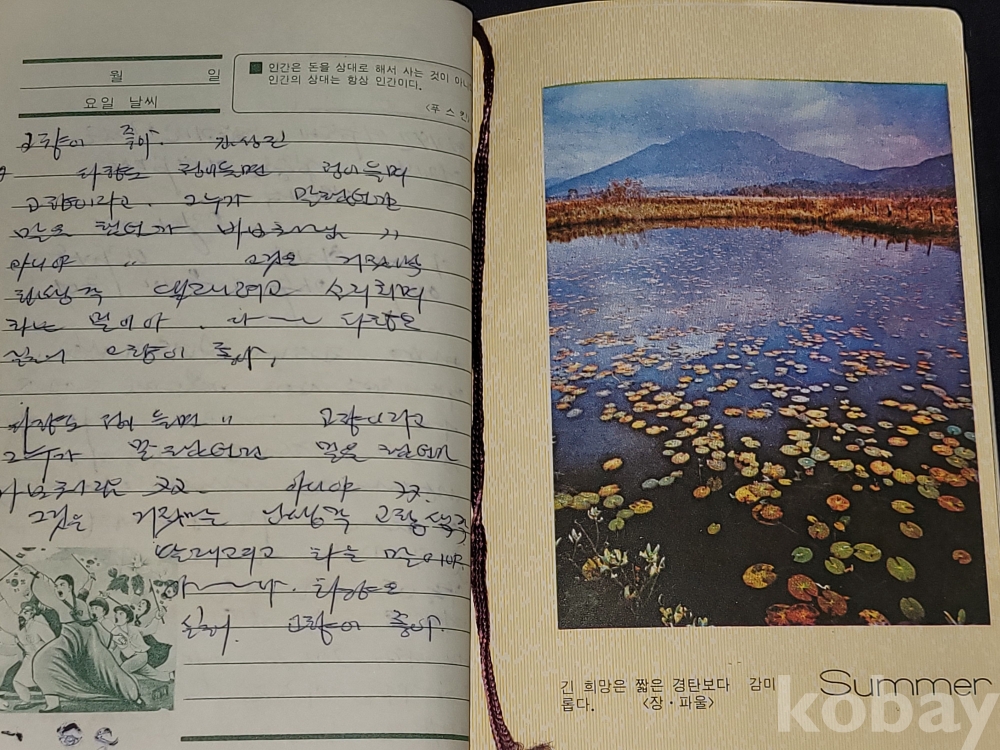 월 일
요일 날씨
인간은 돈을 상대로 해서 사는 것이 아니
인간의 상대는 항상 인간이다.
〈푸 스 킨
고향이 좋아.
타향도 정이들면 정이들면
고향이라고 그누가 말했던가
말을 했던가 바보처럼 〃
아니야 〃 그것은 거짓말
향생각 달래려고
하는 말이야. 아~~ 타향은
싫어 고향이 좋아,
타향도 정이 들면 〃 고향이라고
그누가 말했던가 말을 했던가
바보처럼 아니야
그것은 거짓말 님생각 고향생각
달래려고 하는 말이야
아~~아. 타향은
싫어. 고향이 좋아.
긴 희망은 짧은 경탄보다 감미
롭다. 〈장·파울〉
Summer
kobay